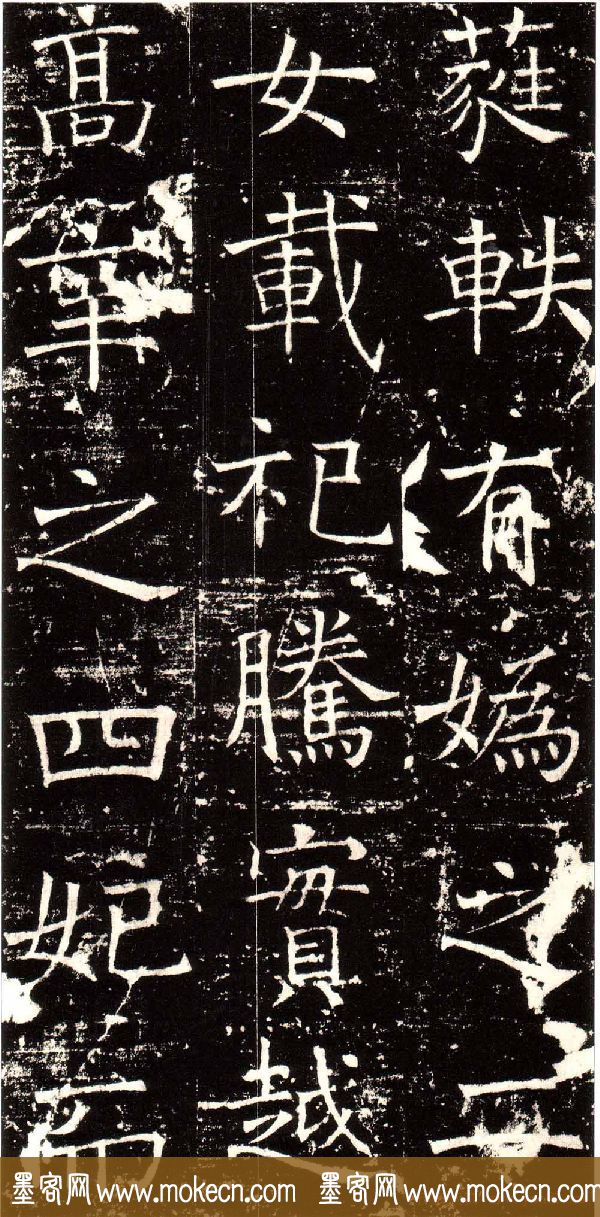 蕤軼有媯之二
女載祀騰實越
髙辛之四妃而
墨客网 www.mokecn.com 墨客网 www.mokecn.com